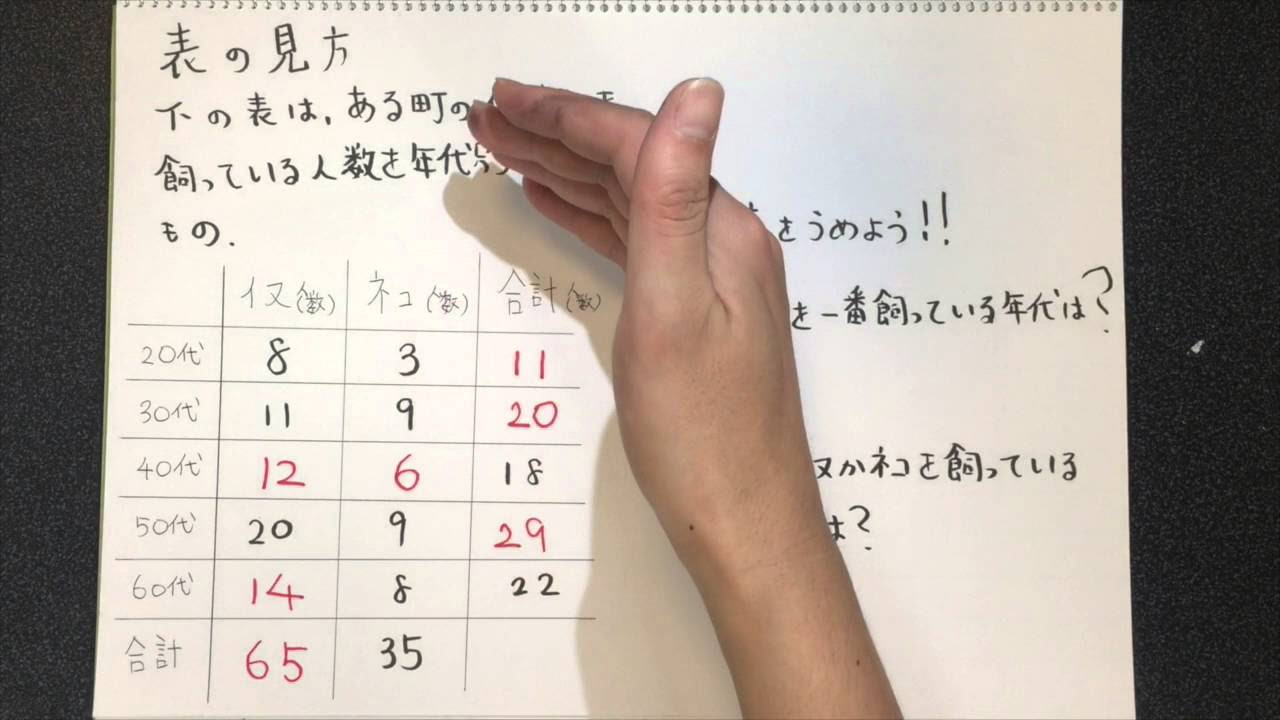 表の見方
下の表は,ある町の
飼っている人数を年代
もの.
をうめよう!!
を一番飼っている年代は?
ヌかネコを飼っている
は?
イヌ(数) ネコ(数) 合計(数)
20代 8 3 11
30代 11 9 20
40代 12 6 18
50代 20 9 29
60代 14 8 22
合計 65 35